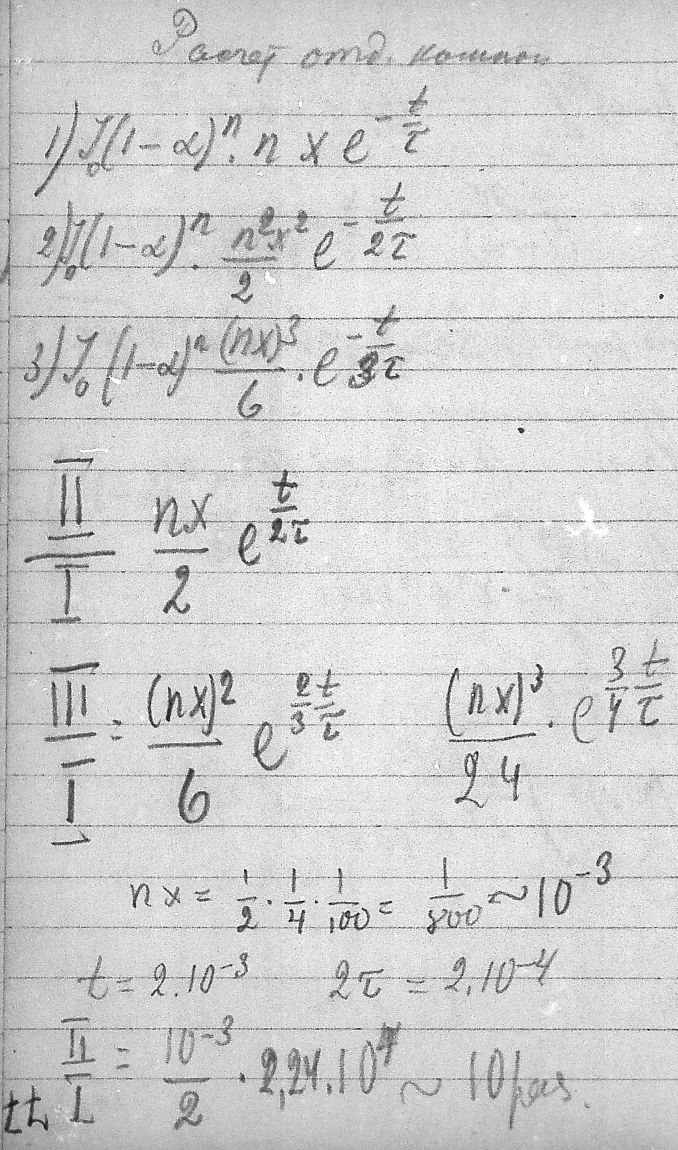 Расчет отд.
1) J₀(1-α)ⁿ · n x e^{-t/τ}
2) J₀(1-α)ⁿ · n²x²/2 e^{-t/2τ}
3) J₀(1-α)ⁿ (nx)³/6 · e^{-t/3τ}
II/I nx/2 e^{t/2τ}
III/I = (nx)²/6 e^{2/3 t/τ} (nx)³/24 · e^{3/4 t/τ}
nx = 1/2 · 1/4 · 1/100 = 1/800 ~ 10⁻³
t = 2.10⁻³ 2τ = 2.10⁻⁴
II/I = 10⁻³/2 · 2,24.10⁴ ~ 10 раз.